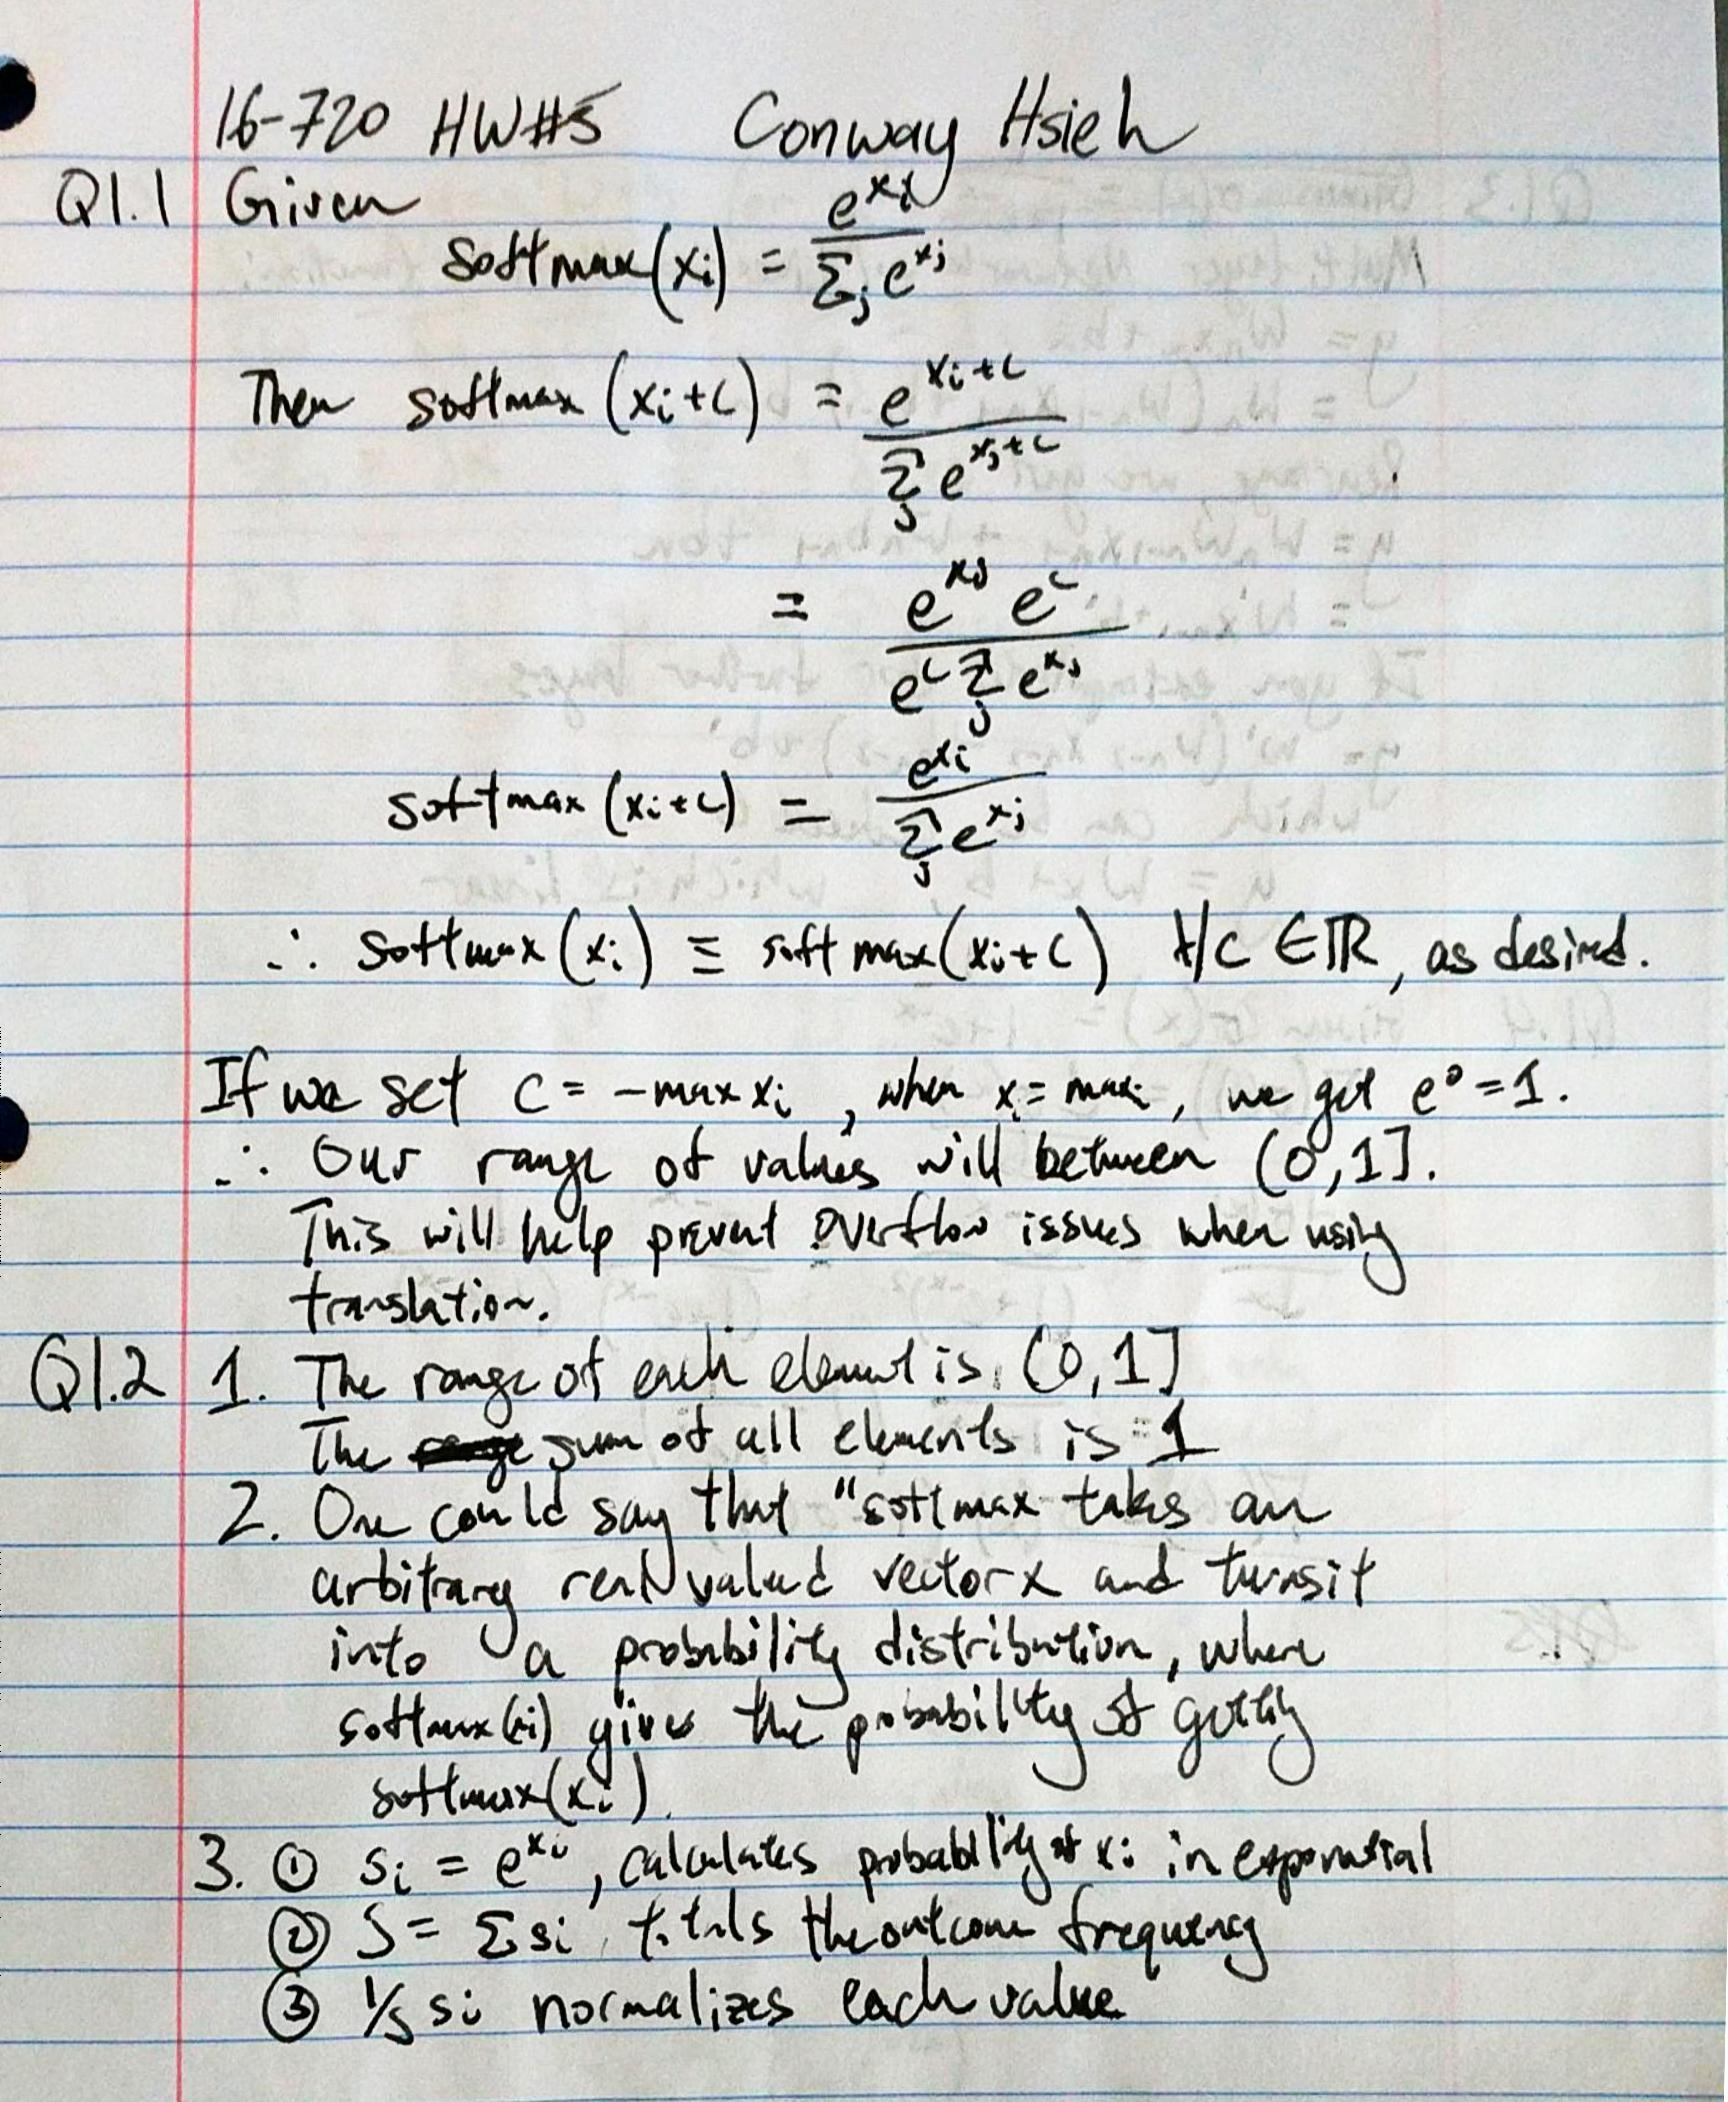 16-720 HW#5 Conway Hsieh
Q1.1 Given
softmax(xᵢ) = e^{xᵢ} / Σⱼ e^{xⱼ}
Then softmax (xᵢ+c) = e^{xᵢ+c} / Σⱼ e^{xⱼ+c}
= e^{xⱼ} e^c / e^c Σⱼ e^{xⱼ}
softmax (xᵢ+c) = e^{xᵢ} / Σⱼ e^{xⱼ}
∴ softmax (xᵢ) ≡ softmax(xᵢ+c) ∀c ∈ ℝ, as desired.
If we set c = -max xᵢ, when xᵢ = max, we get e⁰ = 1.
∴ Our range of values will between (0,1].
This will help prevent overflow issues when using
translation.
Q1.2 1. The range of each element is (0,1]
The sum of all elements is 1
2. One could say that "softmax takes an
arbitrary real valued vector x and turns it
into a probability distribution, where
softmax(xᵢ) gives the probability of getting
softmax(xᵢ).
3. ① sᵢ = e^{xᵢ}, calculates probability of xᵢ in exponential
② S = Σ sᵢ, totals the outcome frequency
③ 1/S sᵢ normalizes each value